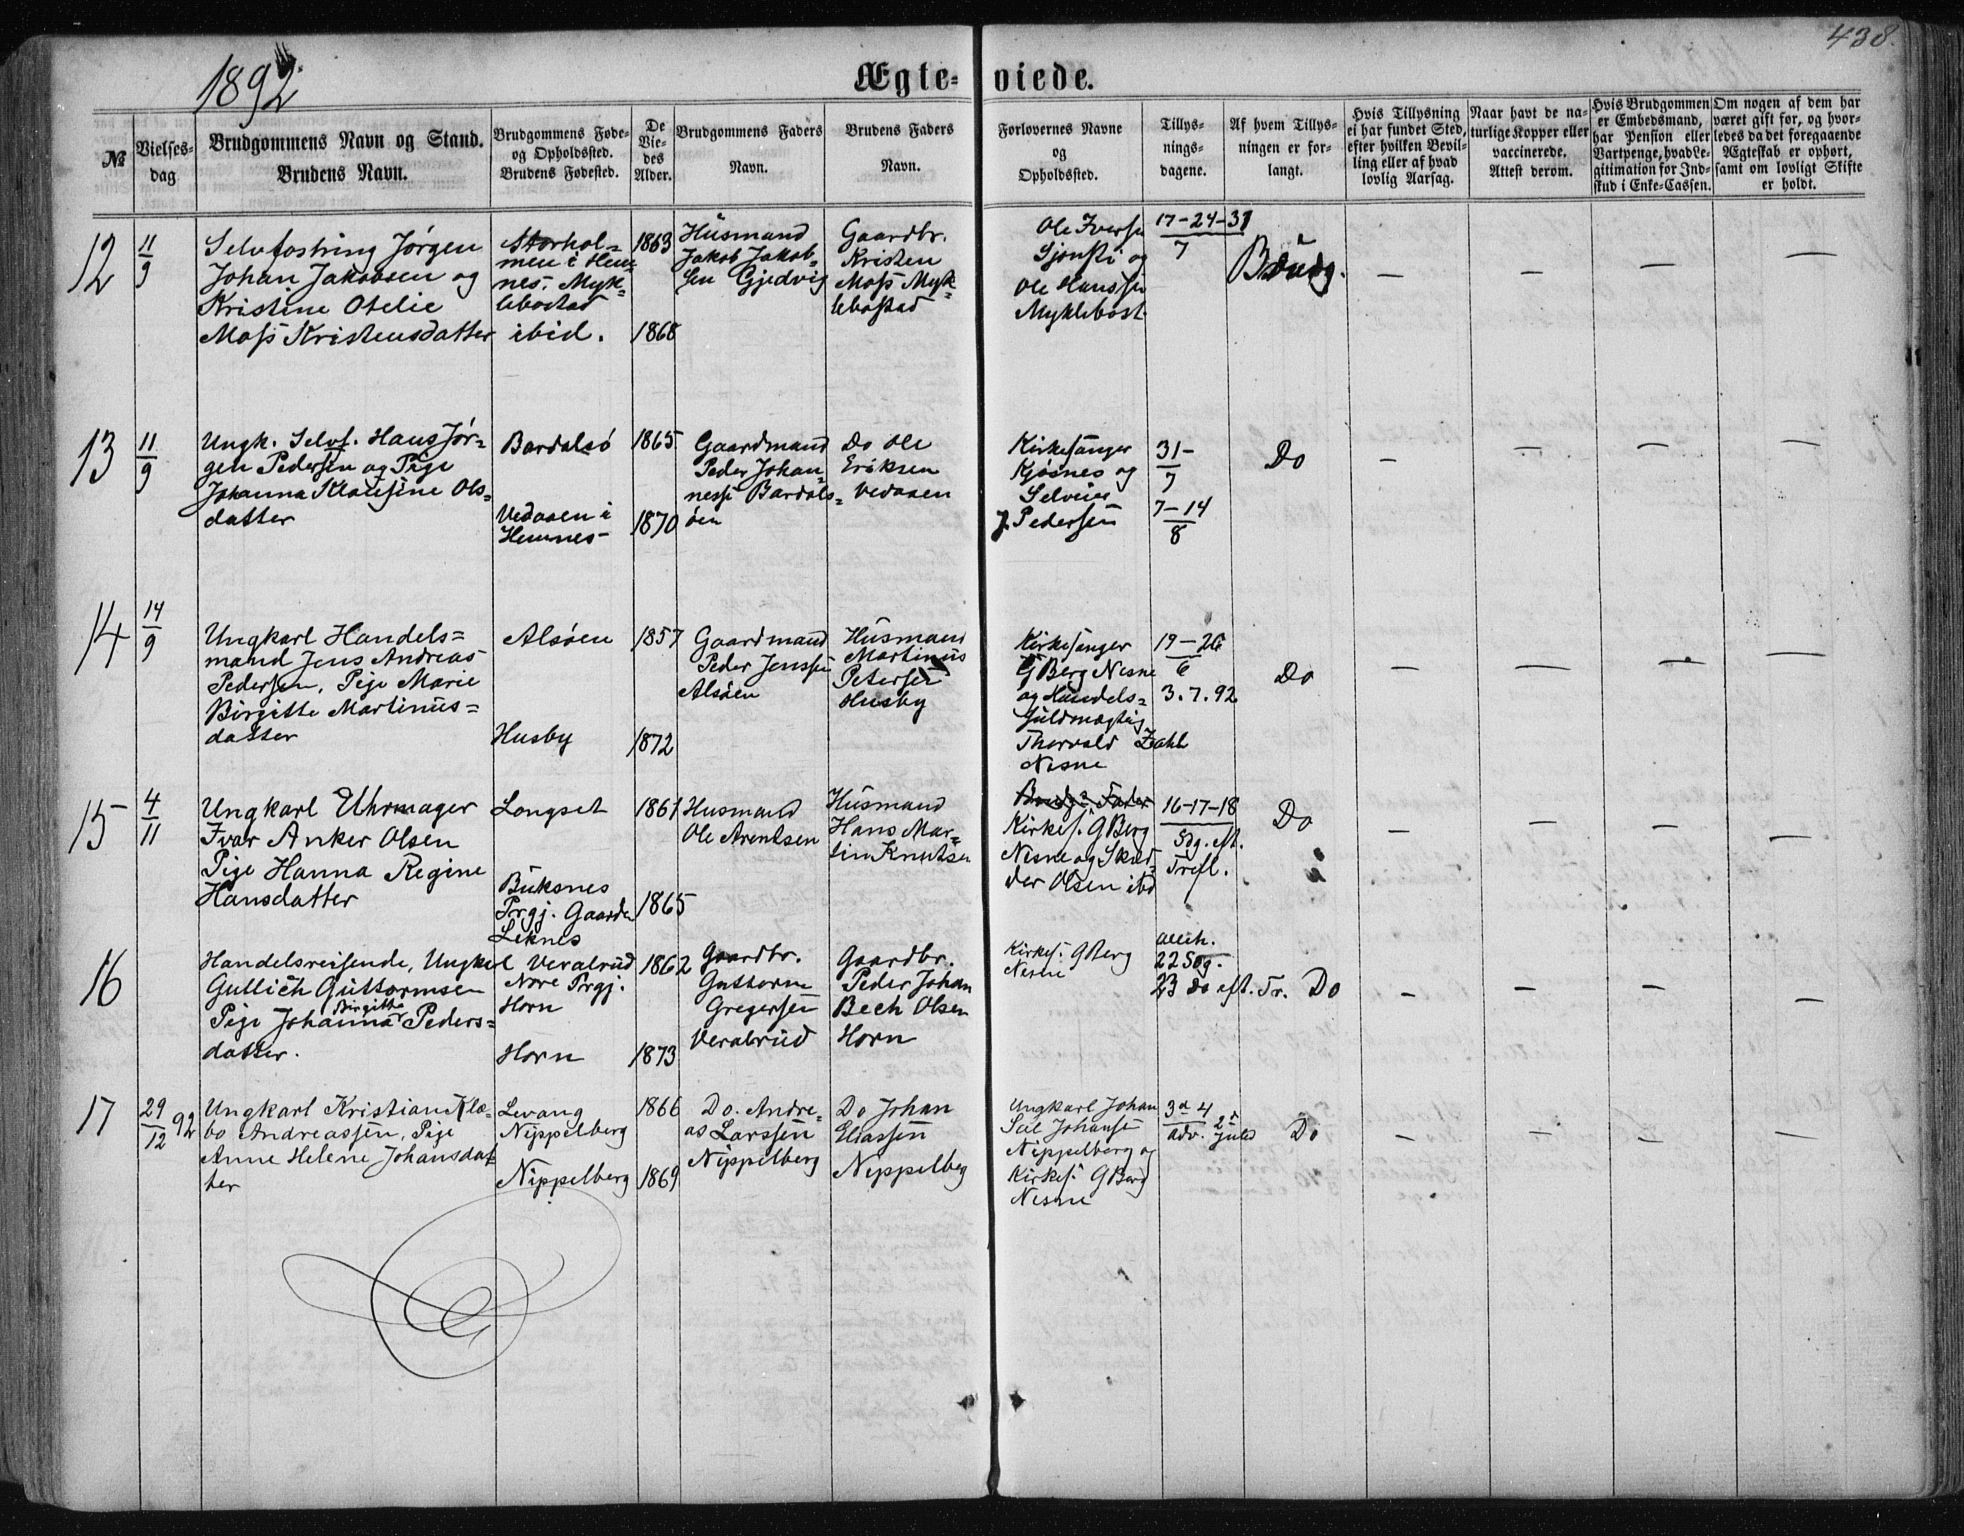 438.
1892.
Ægte-viede.
№
Vielses-dag
Brudgommens Navn og Stand.
Brudens Navn.
Brudgommens Føde-
og Opholdssted.
Brudens Fødested.
De
Vie-
des
Alder.
Brudgommens Faders
Navn.
Brudens Faders
Navn.
Forlovernes Navne
og
Opholdssted.
Tillys-
nings-
dagene.
Af hvem Tillys-
ningen er for-
langt.
Hvis Tillysning
ei har fundet Sted,
efter hvilken Bevil-
ling eller af hvad
lovlig Aarsag.
Naar havt de na-
turlige Kopper eller
vaccinerede.
Attest derom.
Hvis Brudgommen
er Embedsmand,
har Pension eller
Vartpenge, hvad Le-
gitimation for Ind-
skud i Enke-Cassen.
Om nogen af dem har
været gift før, og hvor-
ledes da det foregaaende
Ægteskab er ophørt,
samt om lovligt Skifte
er holdt.
12
11/9
Selvfostring Jørgen
Johan Jakobsen og
Kristine Otelie
Moss Kristensdatter
Storhol-
men i Hem
nes. Myk-
lebostad
ibid.
1863
1868
Husmand
Jakob Jakob-
sen Gjedvig
Gaardbr.
Kristen
Moss Myk-
lebostad
Ole Iversen
Sjonsti og
Ole Hanssen
Myklebost
17-24-31
7
Brudg.
— — — —
13
11/9
Ungk. Selvf. Hans Jør-
gen Pedersen og Pige
Johanna Klausine Ols-
datter
Bardalsø
Vedaaen i
Hemnes
1865
1870
Gaardmand
Peder Johan-
nessen Bardals-
øen
Do Ole
Eriksen
Vedaaen
Kirkesanger
Kjøsnes og
Selveier
J. Pedersen
31-
7
7-14
8
Do
— — — —
14
14/9
Ungkarl Handels-
mand Jens Andreas
Pedersen, Pige Marie
Birgitte Martinus-
datter
Alsøen
Husby
1857
1872
Gaardmand
Peder Jenssen
Alsøen
Husmand
Martinus
Petersen
Husby
Kirkesanger
G Berg Nesne
og Handels-
fuldmægtig
Thorvald Zahl
Nesne
19-26
6
3.7.92
Do
— — — —
15
4/11
Ungkarl Uhrmager
Ivar Anker Olsen
Pige Hanna Regine
Hansdatter
Longset
Buksnes
Prgj. Gaarden
Leknes
1861
1865
Husmand
Ole Arentsen
Husmand
Hans Mar-
tin Knutsen
Brudgs Fader
Kirkes. G Berg
Nesne og Skræd-
der Olsen ibd
16-17-18
Søg. eft.
Trefl.
Do
— — — —
16
Handelsreisende, Ungkarl
Gullich Guttormsen
Pige Johanna Birgitte Peders-
datter.
Veralrud
Nore Prgj.
Horn
Horn
1862
1873
Gaardbr.
Guttorm
Gregersen
Veralrud
Gaardbr.
Peder Johan
Bech Olsen
Horn
Kirkes. G Berg
Nesne
22 Søg.
23 do eft. Tr.
Do
— — — —
17
29/12 92
Ungkarl Kristian Klæ-
bo Andreassen, Pige
Anne Helene Johansdat-
ter
Levang
Nippelberg
Nippelberg
1866
1869
Do. Andre-
as Larssen
Nippelberg
Do Johan
Eliassen
Nippelbeg
Ungkarl Johan
Johansen
Nippelberg og
Kirkes. G Berg
Nesne
3d 4
adv. 2d Juled
Do
— — — —